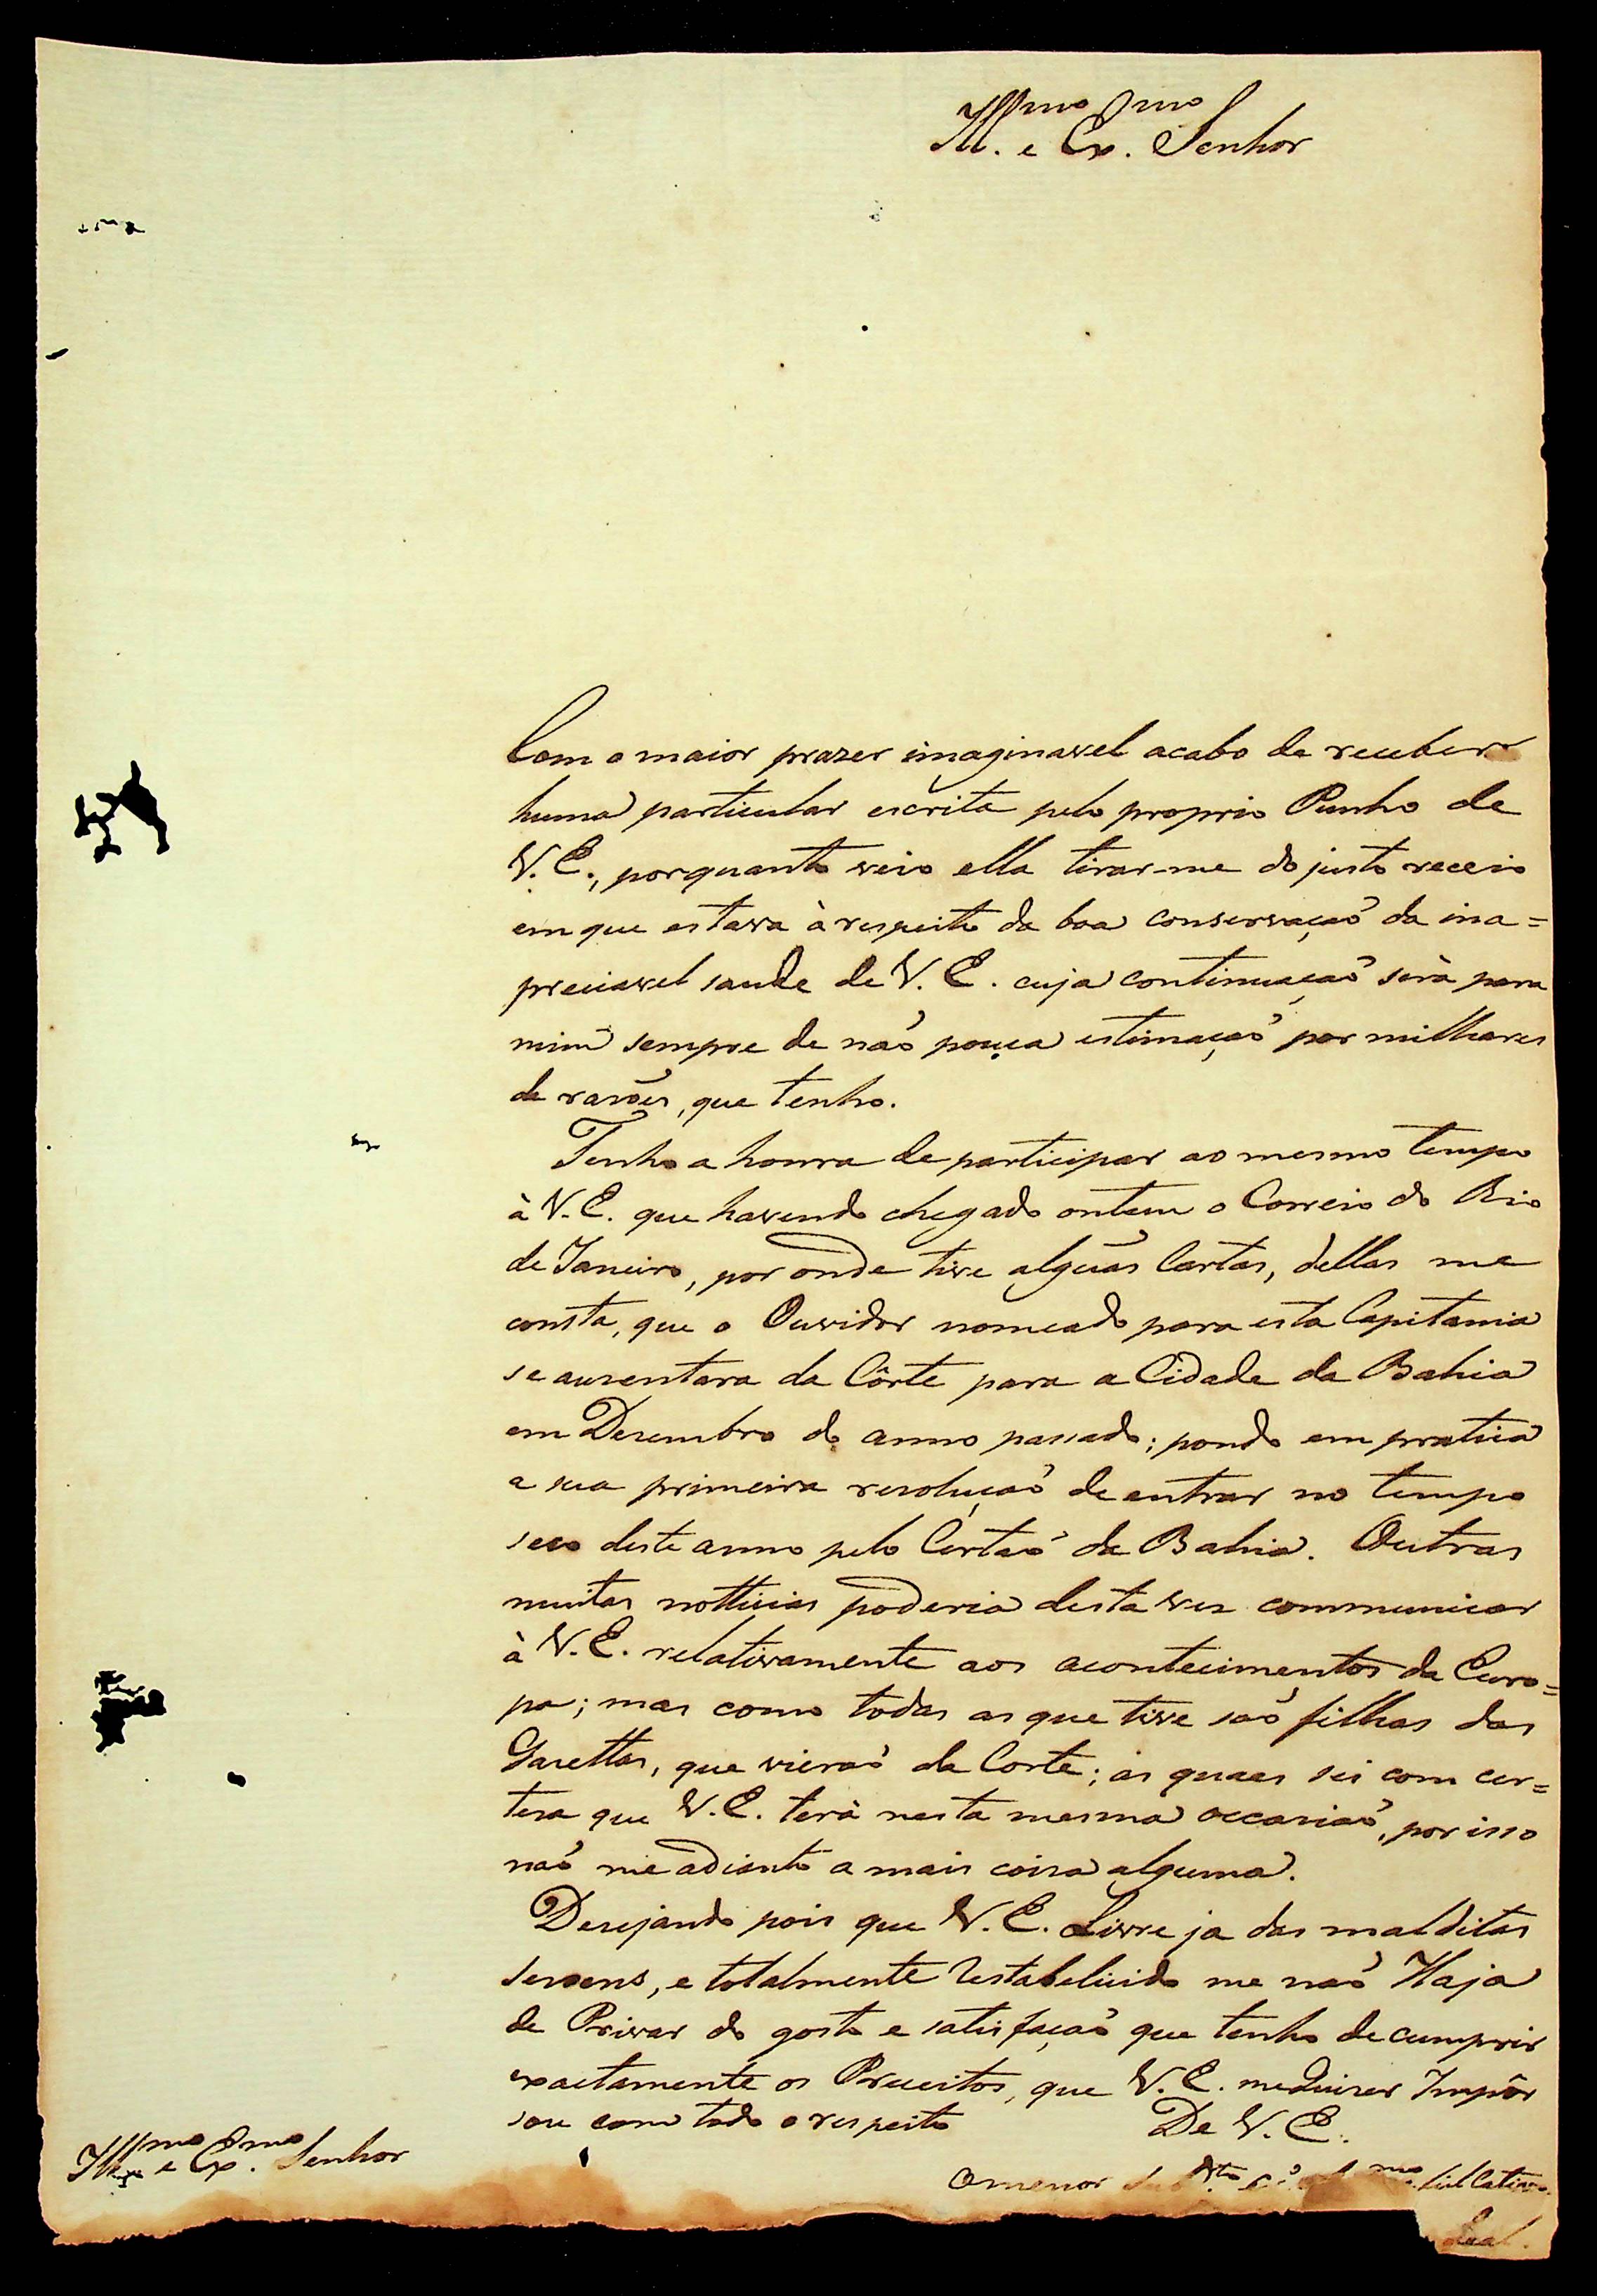 Ill.mo e Ex.mo Senhor
Com o maior prazer imaginavel acabo de receber
huma particular escrita pelo proprio Punho de
V. E., porquanto veio ella tirar-me do justo receio
em que estava à respeito da boa conservaçaõ da ina=
preciavel saude de V. E. cuja continuaçaõ serà para
mim sempre de naõ pouca estimaçaõ por milhares
de rasões, que tenho.
Tenho a honra de participar ao mesmo tempo
à V. E. que havendo chegado ontem o Correio do Rio
de Janeiro, por onde tive algũas Cartas, dellas me
consta, que o Ouvidor nomeado para esta Capitania
se ausentara da Côrte para a Cidade da Bahia
em Dezembro do anno passado; pondo em pratica
a sua primeira resoluçaõ de entrar no tempo
seco deste anno pelo Certaõ da Bahia. Outras
muitas notticias poderia desta vez communicar
à V. E. relativamente aos acontecimentos da Euro=
pa; mas como todas as que tive saõ filhas das
Gazettas, que vieraõ da Corte; as quaes sei com cer=
teza que V. E. terà nesta mesma occasiaõ, por isso
naõ me adianto a mais coiza alguma.
Desejando pois que V. E. Livre ja das malditas
sesoens, e totalmente Restabelicido me naõ Haja
de Privar do gosto e satisfaçaõ que tenho de cumprir
exactamente os Preceitos, que V. E. me Quizer Impôr
sou com todo o respeito
De V. E.
Ill.mo e Ex.mo Senhor
O menor fiel Cativo
Leal.